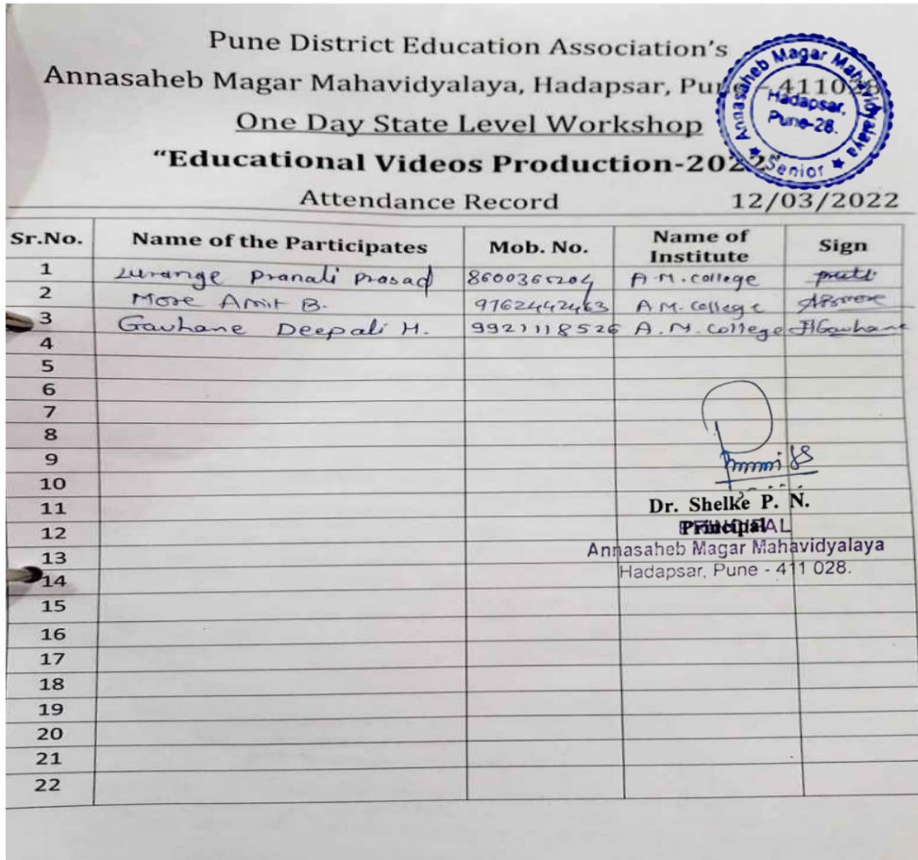 Pune District Education Association's
Annasaheb Magar Mahavidyalaya, Hadapsar, Pune - 411028
One Day State Level Workshop
"Educational Videos Production-2022"
Attendance Record 12/03/2022
Annasaheb Magar Mahavidyalaya
Hadapsar,
Pune-28.
★ Senior ★
Sr.No. Name of the Participates Mob. No. Name of Institute Sign
1 Pranali Prasad A.M. College
2 More Amit B. 9762442463 A.M. College ABmore
3 Gavhane Deepali H. 9921118526 A.M. College Gavhane
4
5
6
7
8
9
10
11
12
13
14
15
16
17
18
19
20
21
22
Dr. Shelke P. N.
Principal
PRINCIPAL
Annasaheb Magar Mahavidyalaya
Hadapsar, Pune - 411 028.